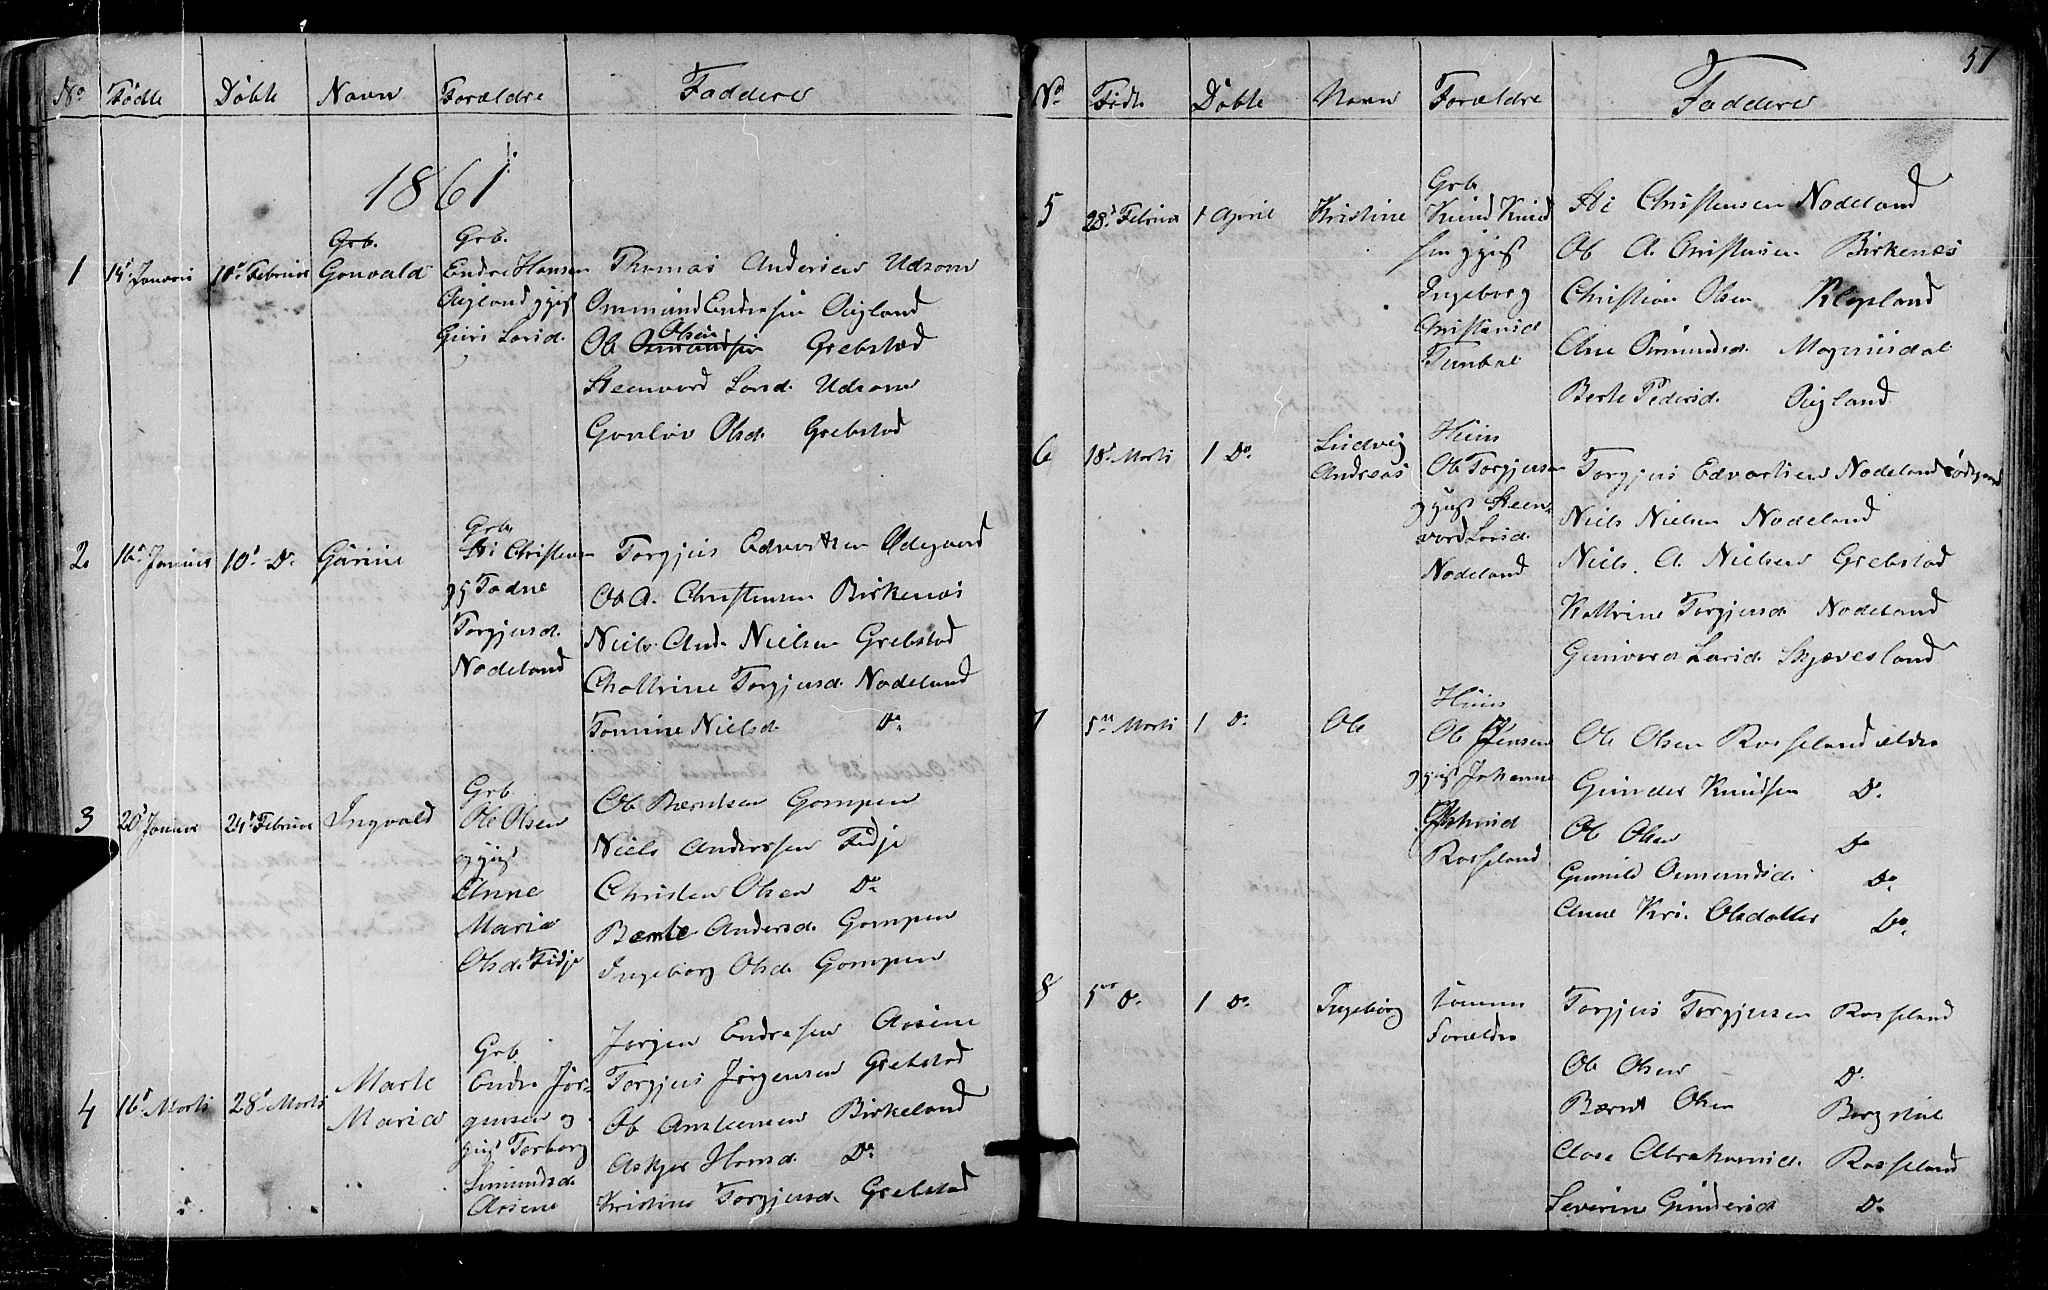 No Fødte Døbte Navn Forældre Faddere
1861
1 14d Januari 10de Februar Gonvald
Grb.
Grb.
Endre Hansen
Øigland og gust
Guri Larsd.
Thomas Andersen Udsom
Ommund Endresen Øigland
Ole Olsen Grebstad
Steenvord Larsd. Udsom
Gonløv Olsd. Grebstad
2 16d Januar 10d Do Gurine
Grb.
Christensen
og Tadne
Torgjusd.
Nodeland
Torgjus Edvartsen Ødegaard
Ole A. Christensen Birkenæs
Niels And. Nielsen Grebstad
Chattrine Torgjusd. Nodeland
Tomine Nielsd. Do
3 20d Januar 24d Februar Ingvald
Grb.
Ole Olsen
og gust
Anne
Maria
Olsd. Fidje
Ole Berntsen Gompen
Niels Anderssen Fidje
Christen Olsen Do
Bernte Andersd. Gompen
Ingeborg Olsd. Gompen
4 16d Marti 28d Marti Marte
Maria
Grb.
Endre Jør-
gensen og
gust Torborg
Simundsd.
Aasene
Jørgen Endresen Aasene
Torgjus Jørgensen Grebstad
Ole Anstensen Birkeland
Askjer Hansd. Do
Kristine Torgjusd. Grebstad
57
No Fødte Døbte Navn Forældre Faddere
5 28d Februar 1 April Kristine
Grb.
Knud Knud
sen og gust
Ingeborg
Christensd.
Tunbal
Christensen Nodeland
Ole A. Christensen Birkenæs
Christian Olsen Klepland
Ane Omundsd. Mognusdal
Berte Pedersd. Øigland
6 18d Marti 1 Do Ludvig
Andreas
Huus
Ole Torgjusen
og gust Steen-
vord Larsd.
Nodeland
Torgjus Edvartsen Nodeland Ødegaard
Niels Nielsen Nodeland
Niels A. Nielsen Grebstad
Kattrine Torgjusd. Nodeland
Gunvord Larsd. Skjævesland
7 5te Marti 1 Do Ole
Huus
Ole Jensen
og gust Johanne
Rosseland
Ole Olsen Rosseland ældre
Gunder Knudsen Do
Ole Olsen Do
Gunild Osmundsd. Do
Anne Kri. Olsdatter Do
8 5te Do 1 Do Ingeborg
samme
Forældre
Torgjus Torgjusen Rosseland
Ole Olsen Do
Bærnt Olsen Borgstul
Aase Abrahamsd. Rosseland
Severine Gundersd. Do